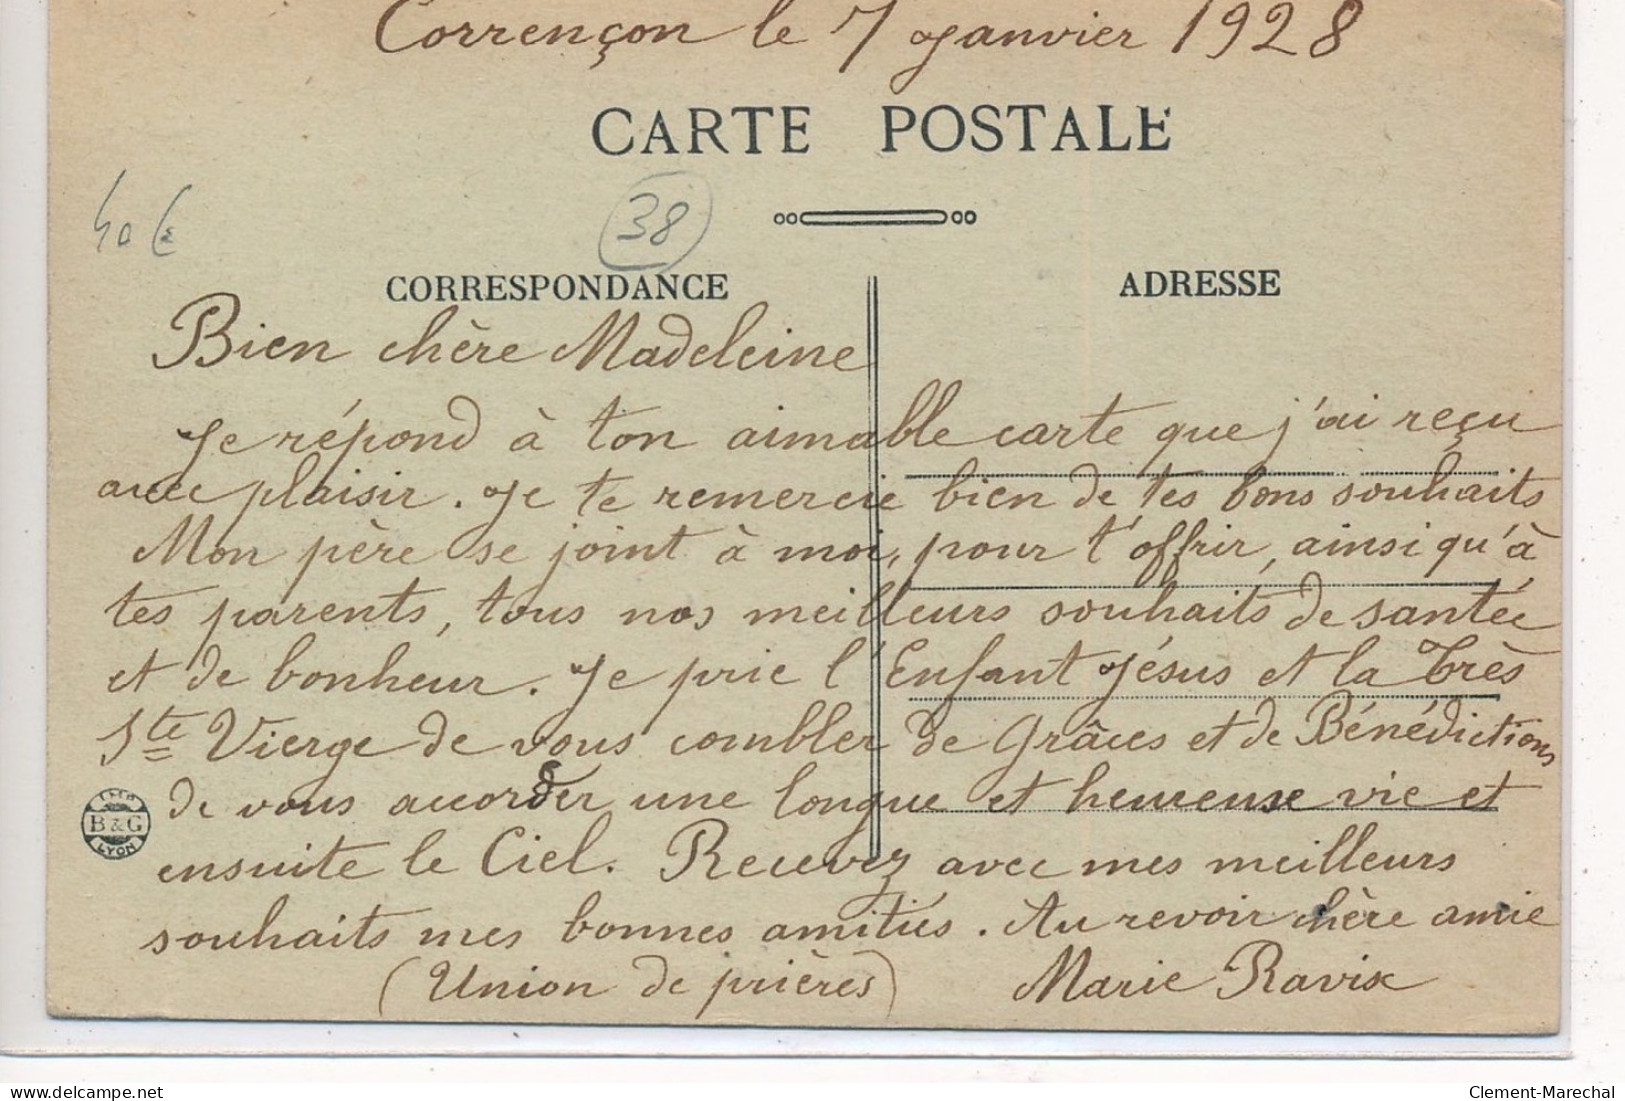 Corrençon le 7 Janvier 1928
CARTE POSTALE
40€
38
CORRESPONDANCE
ADRESSE
Bien chère Madeleine
Je répond à ton aimable carte que j'ai reçu
avec plaisir. Je te remercie bien de tes bons souhaits
Mon père se joint à moi, pour t'offrir, ainsi qu'à
tes parents, tous nos meilleurs souhaits de santée
et de bonheur. Je prie l'Enfant Jésus et la Très
Ste Vierge de vous combler de Grâces et de Bénédictions
de vous accorder une longue et heureuse vie et
ensuite le Ciel. Recevez avec mes meilleurs
souhaits mes bonnes amitiés. Au revoir chère amie
(Union de prières) Marie Ravix
IMP B & G LYON
delcampe.net
Clement-Marechal